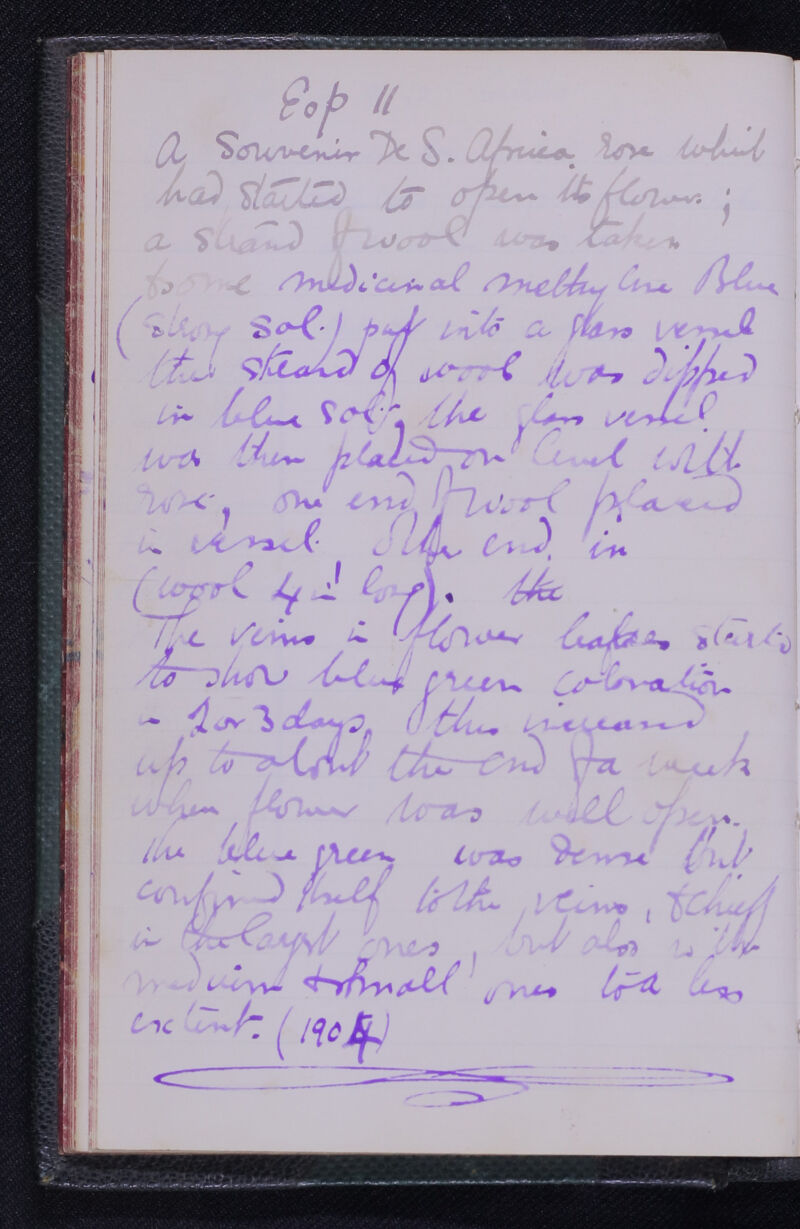 Exp 11
A Souvenir De S. Africa rose which
had started to open its flowers ;
a strand of wool was taken
& some medicinal methylene Blue
(strong Sol.) put into a glass vessel
the strand of wool was dipped
in blue Sol., the glass vessel
was then placed on level with
rose, one end of wool placed
in vessel other end in
(wool 4 in long). the
The veins in flower started
to show blue green coloration
in 2 or 3 days, this increased
up to about the end of a week
when flower was well open.
The blue green was dense but
confined itself to the veins, & chiefly
in the largest ones, but also in the
medium & small ones to a less
extent. (1904)